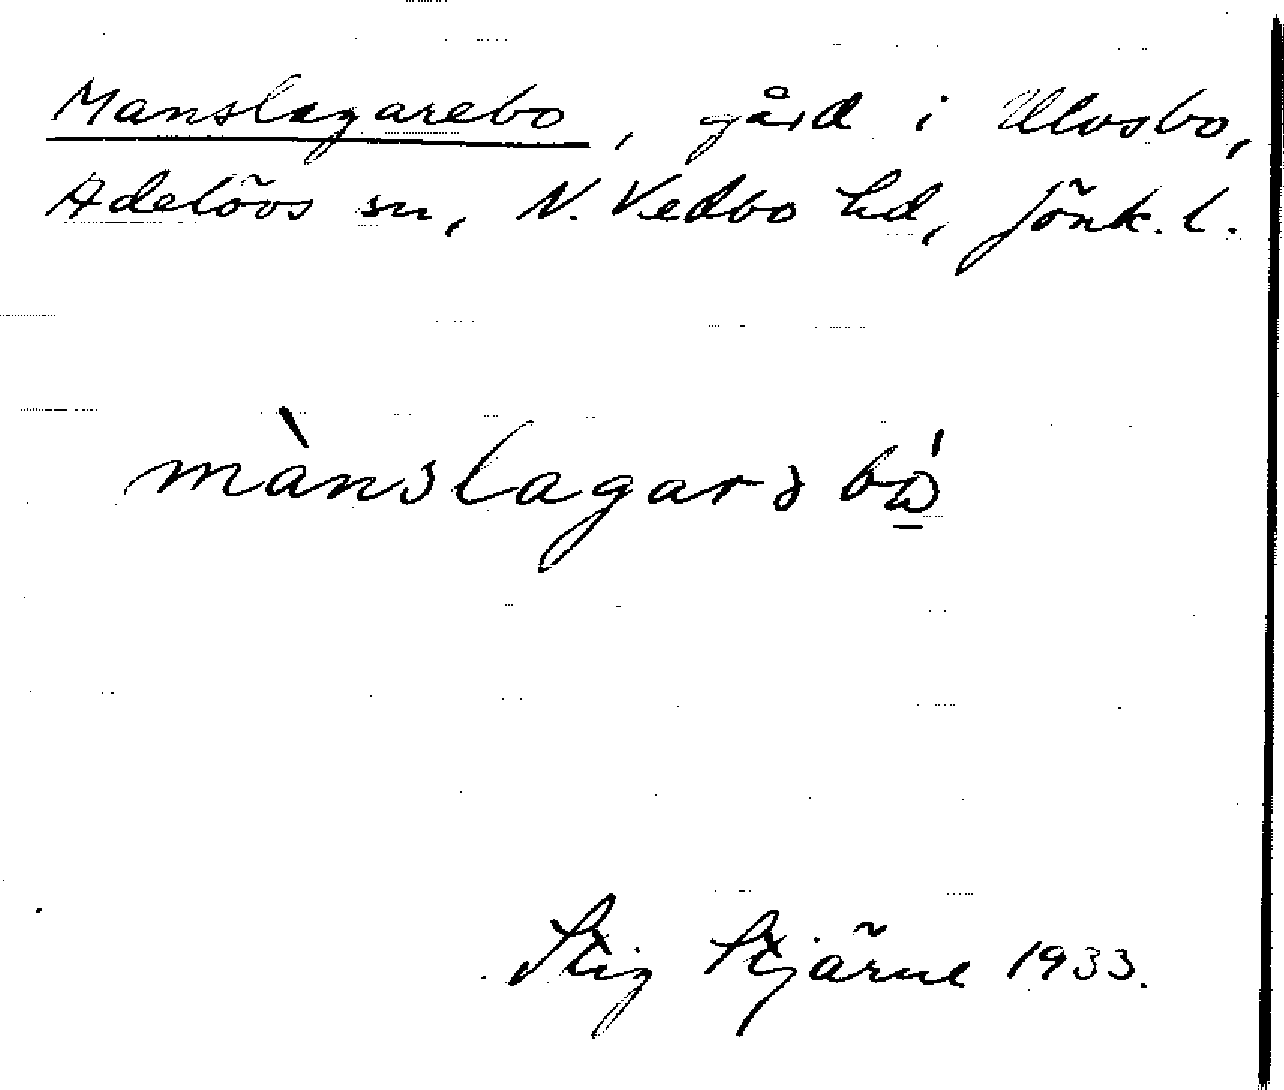 Manslagarebo, gård i Ulvsbo,
Adelövs sn, N. Vedbo hd, Jönk. l.
mànslagarə bó̲
Stig Stjärne 1933.